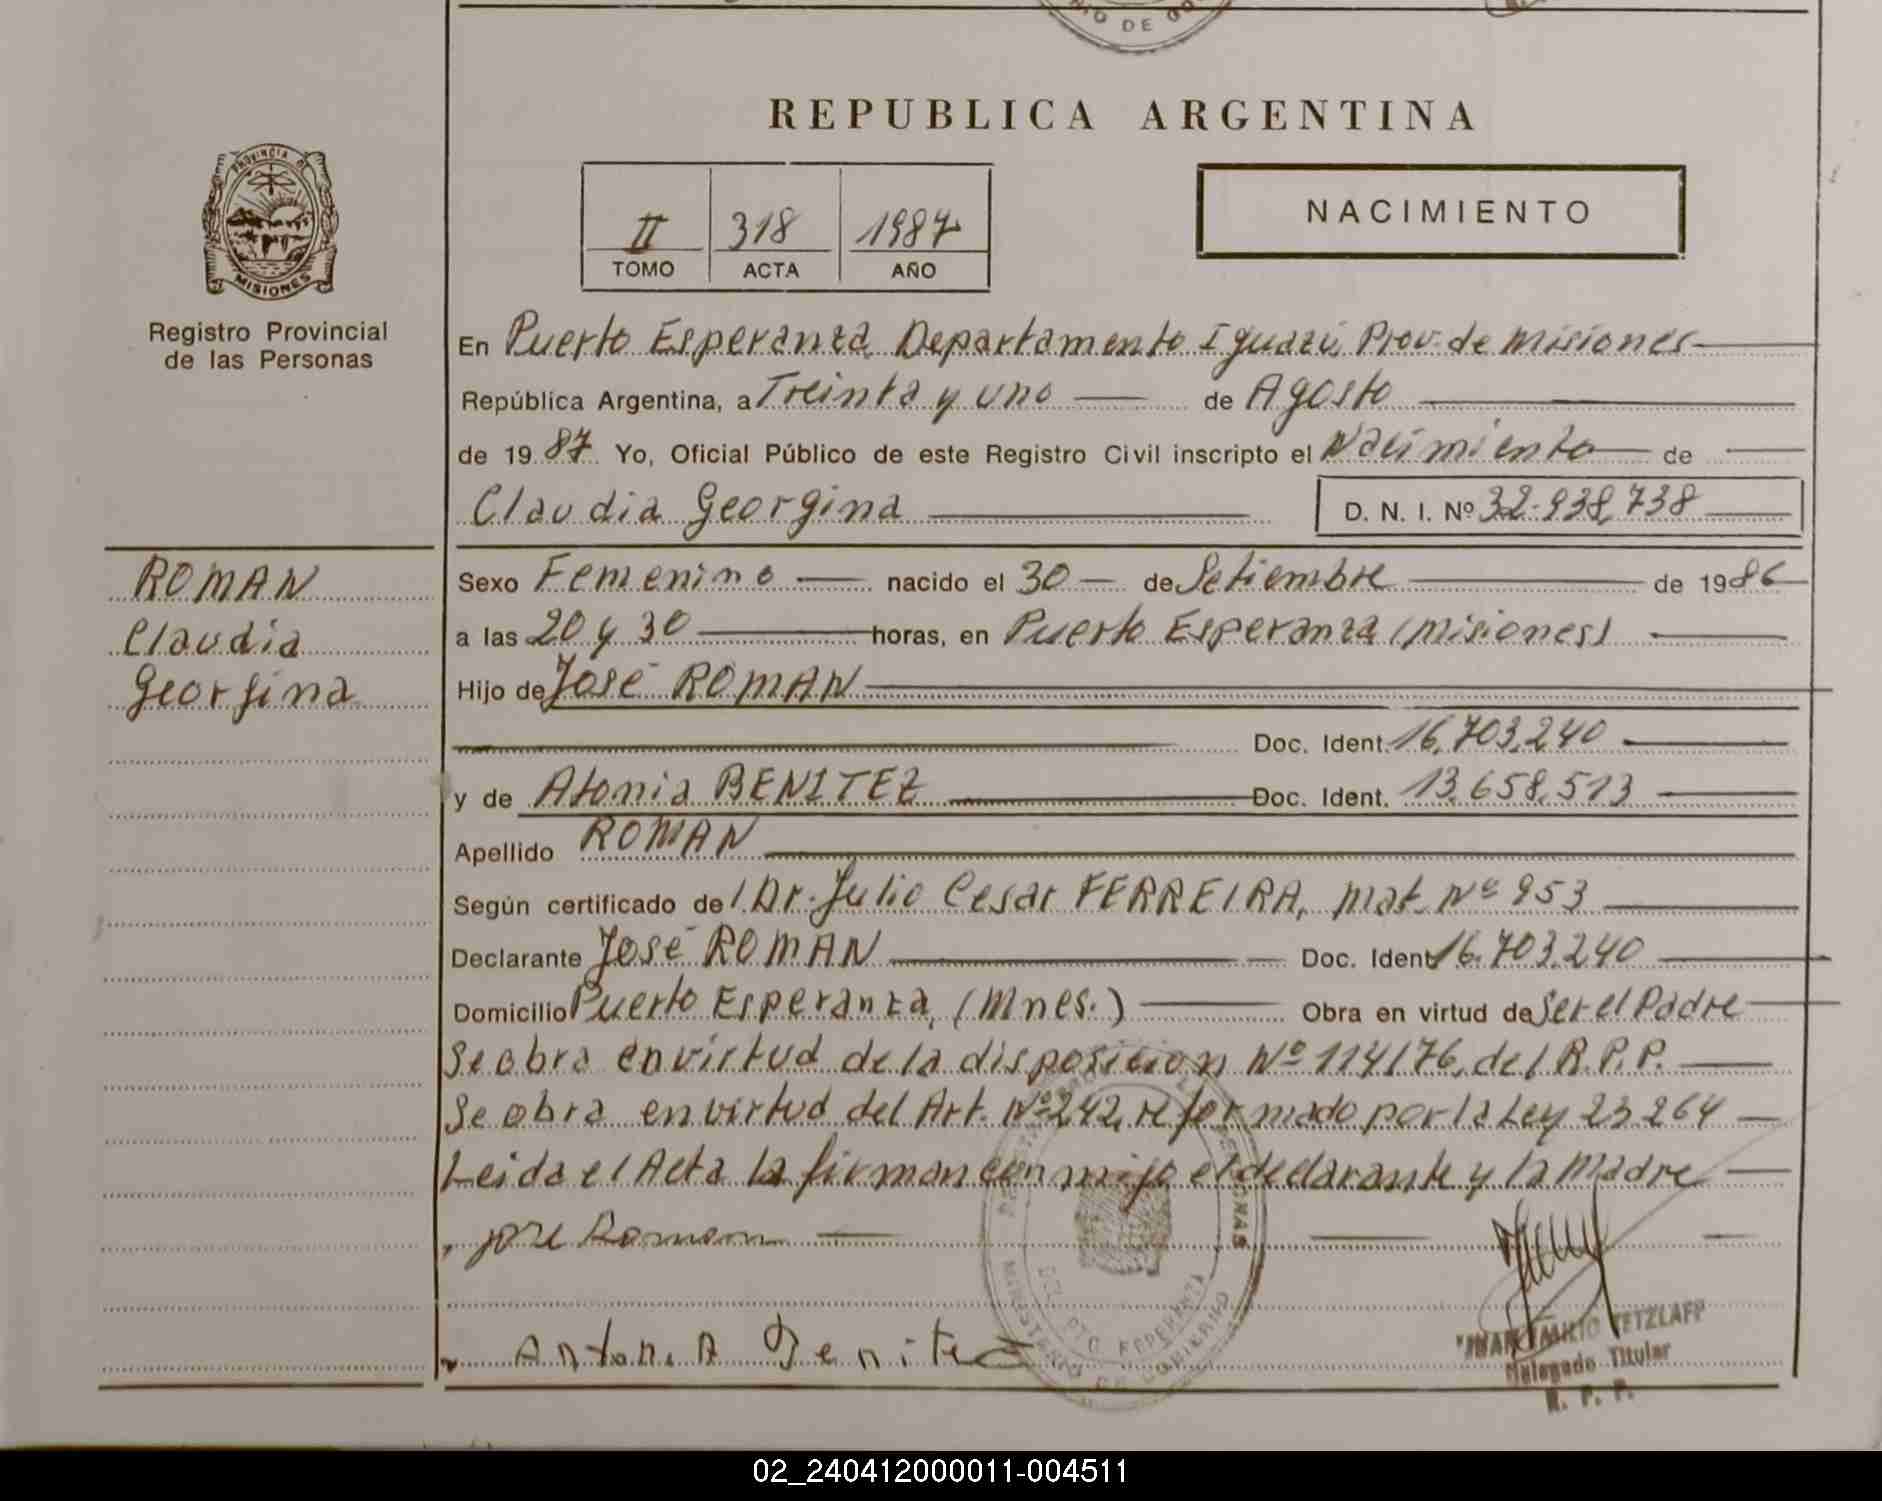 RIO DE GO
REPUBLICA ARGENTINA
PROVINCIA DE
MISIONES
Registro Provincial
de las Personas
II 318 1987
TOMO ACTA AÑO
NACIMIENTO
En Puerto Esperanza, Departamento Iguazú, Prov. de Misiones
República Argentina, a Treinta y uno de Agosto
de 1987 Yo, Oficial Público de este Registro Civil inscripto el Nacimiento de
Claudia Georgina D. N. I. Nº 32.938.738
ROMAN
Claudia
Georgina
Sexo Femenino nacido el 30 de Setiembre de 1986
a las 20 y 30 horas, en Puerto Esperanza (Misiones)
Hijo de José ROMAN
Doc. Ident. 16.703.240
y de Atonia BENITEZ Doc. Ident. 13.658.513
Apellido ROMAN
Según certificado del Dr. Julio Cesar FERREIRA, Mat. Nº 953
Declarante José ROMAN Doc. Ident 16.703.240
Domicilio Puerto Esperanza, (Mnes.) Obra en virtud de Ser el Padre
Se obra en virtud de la disposicion Nº 114/76, del R.P.P.
Se obra en virtud del Art. Nº 242, reformado por la Ley 23264
Leida el Acta la firman conmigo el declarante y la Madre
jose Roman
Antonia Benitez
MINISTERIO DE GOBIERNO
PTO ESPERANZA
EMILIO TETZLAFF
Delegado Titular
R. P. P.
02_240412000011-004511